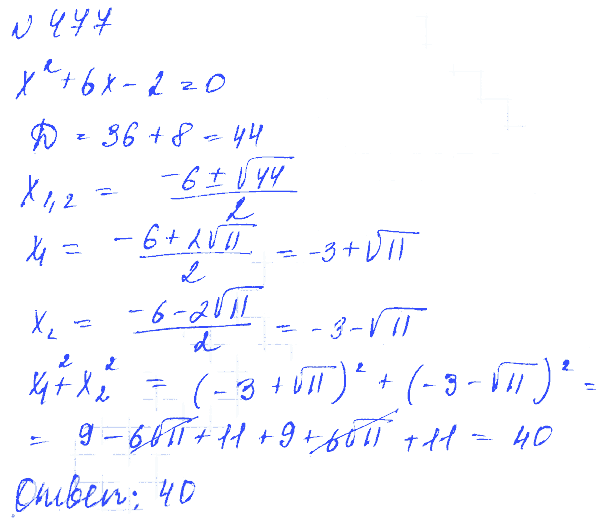 № 477
x² + 6x - 2 = 0
D = 36 + 8 = 44
x₁,₂ = (-6 ± √44)/2
x₁ = (-6 + 2√11)/2 = -3 + √11
x₂ = (-6 - 2√11)/2 = -3 - √11
x₁² + x₂² = (-3 + √11)² + (-3 - √11)² =
= 9 - 6√11 + 11 + 9 + 6√11 + 11 = 40
Ответ: 40